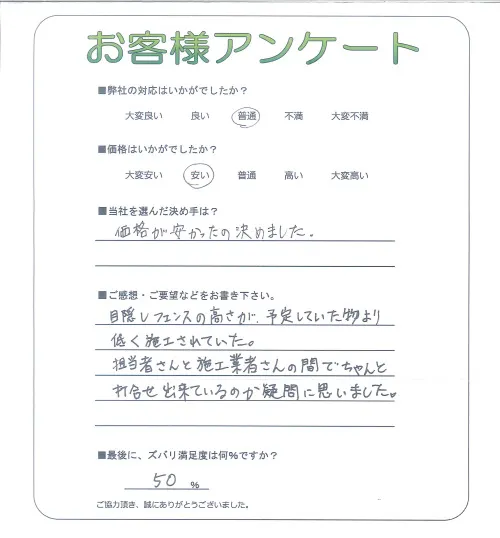 お客様アンケート
■弊社の対応はいかがでしたか？
大変良い 良い 普通 不満 大変不満
■価格はいかがでしたか？
大変安い 安い 普通 高い 大変高い
■当社を選んだ決め手は？
価格が安かったの決めました。
■ご感想・ご要望などをお書き下さい。
目隠しフェンスの高さが、予定していた物より
低く施工されていた。
担当者さんと施工業者さんの間でちゃんと
打合せ出来ているのか疑問に思いました。
■最後に、ズバリ満足度は何%ですか？
50 %
ご協力頂き、誠にありがとうございました。